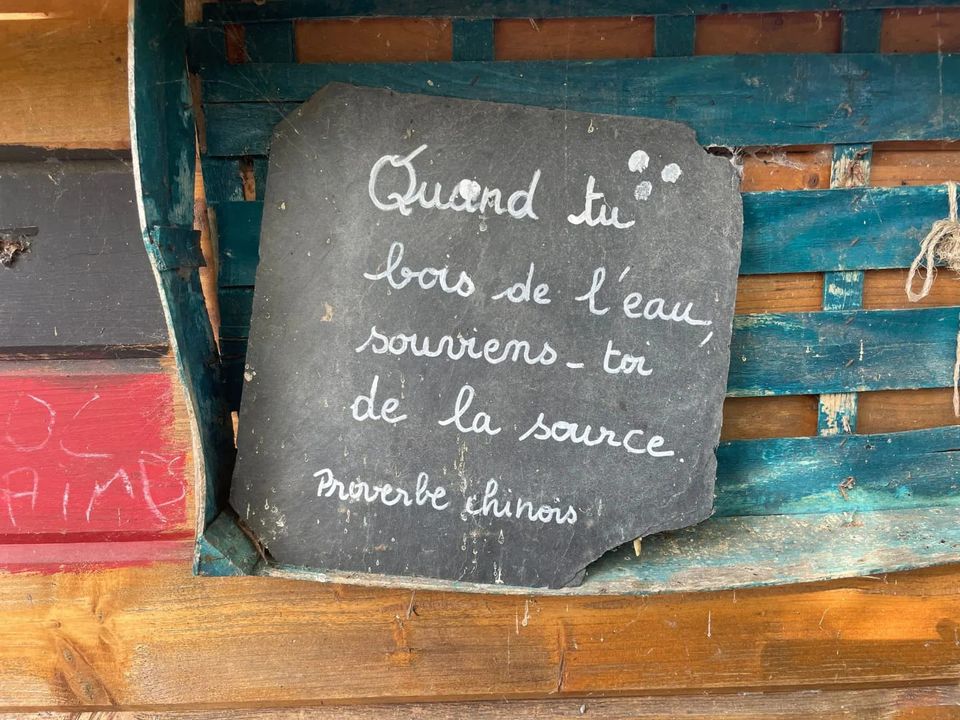 Quand tu
bois de l'eau,
souviens-toi
de la source.
Proverbe chinois